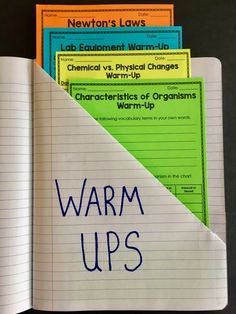 Newton's Laws
Name: Date:
Lab Equipment Warm-Up
Name: Date:
Chemical vs. Physical Changes
Warm-Up
Name: Date:
Characteristics of Organisms
Warm-Up
following vocabulary terms in your own words.
in the chart.
WARM
UPS